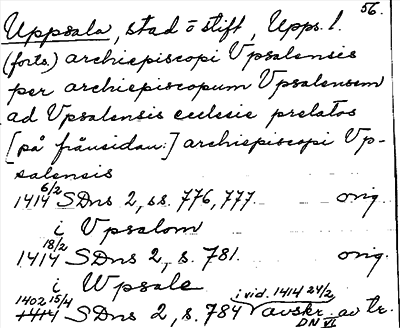 56.
Uppsala, stad o stift, Upps. l.
(forts.) archiepiscopi Vpsalensis
per archiepiscopum Vpsalensem
ad Vpsalensis ecclesie prelatos
[på frånsidan:] archiepiscopi Vp-
salensis
1414 6/2 SDns 2, ss. 776, 777. orig.
i Vpsalom
1414 18/2 SDns 2, s. 781. orig.
i Wpsale
i vid. 1414 24/2
1402 15/4 1414 SDns 2, s. 784 avskr. av tr.
DN VI